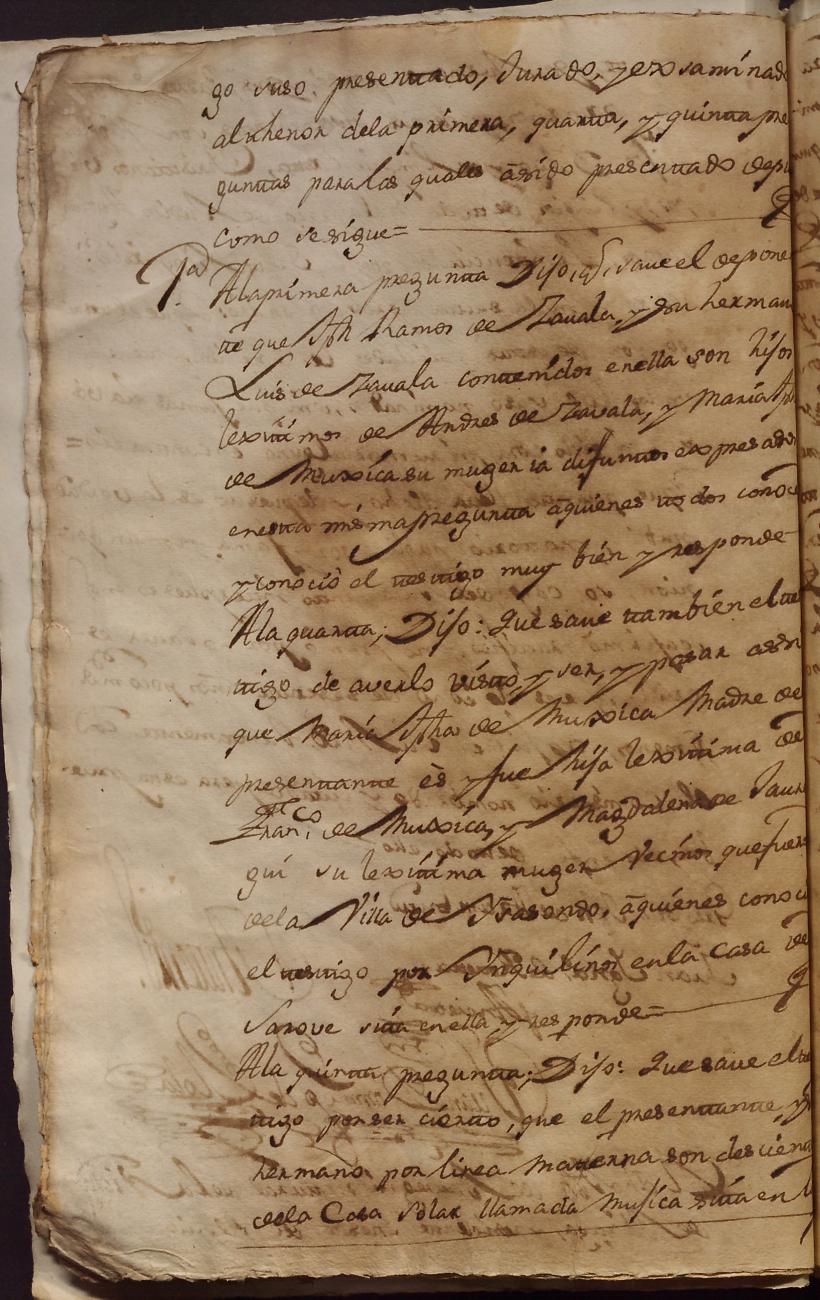 go suso presentado, Jurado, y exsaminad
al thenor dela primera, quarta, y quinta pre
guntas para las quales a sido presentado depu
como se sigue =
1ª
A la primera pregunta Dijo, q̃ save el depone
te que Jph Ramos de Zavala, y su herman
Luis de Zavala contenidos en ella son hijos
lexitimos de Andres de Zavala, y Maria
de Muxica su muger ia difuntos expresados
en esta misma pregunta a quienes todos conoce
y conocio el testigo muy bien y responde
A la quarta, Dijo: Que save tambien el tes
tigo, de averlo visto, y ser, y pasar assi
que Maria Jpha de Muxica Madre de
presentante es y fue hija lexitima de
Franco. de Muxica, y Magdalena de Jaure
gui su lexitima muger vecinos que fuero
dela Villa de Ydiasaval, a quienes conocio
el testigo por Ynquilinos en la Casa de
sita en ella, y responde =
A la quinta pregunta, Dijo: Que save el tes
tigo por ser cierto, que el presentante, y
hermano por linea Materna son descien
de la Casa solar llamada Mujica sita en